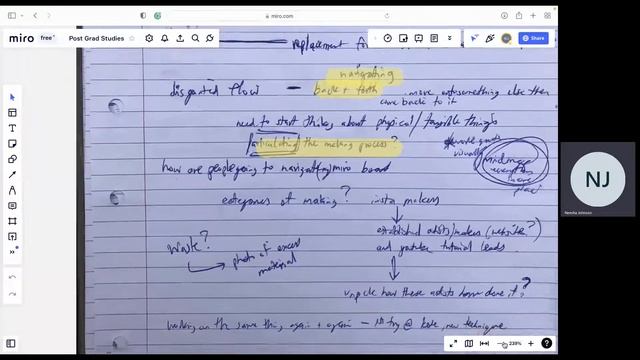 miro.com
miro free Post Grad Studies Share
replacement for
navigating
disjointed flow – back + forth ... move onto something else then
come back to it
need to start thinking about physical/tangible things
articulating the making process?
visually
mindmap
how are people going to navigate my miro board
categories of making? insta makers
established artists/makers (website?)
and youtube tutorial leads
waste?
photo of excess
material
unpick how these artists have done it?
working on the same thing, again + again – 1st try @ home, new technique
NJ
Nemisha Johnson
239%